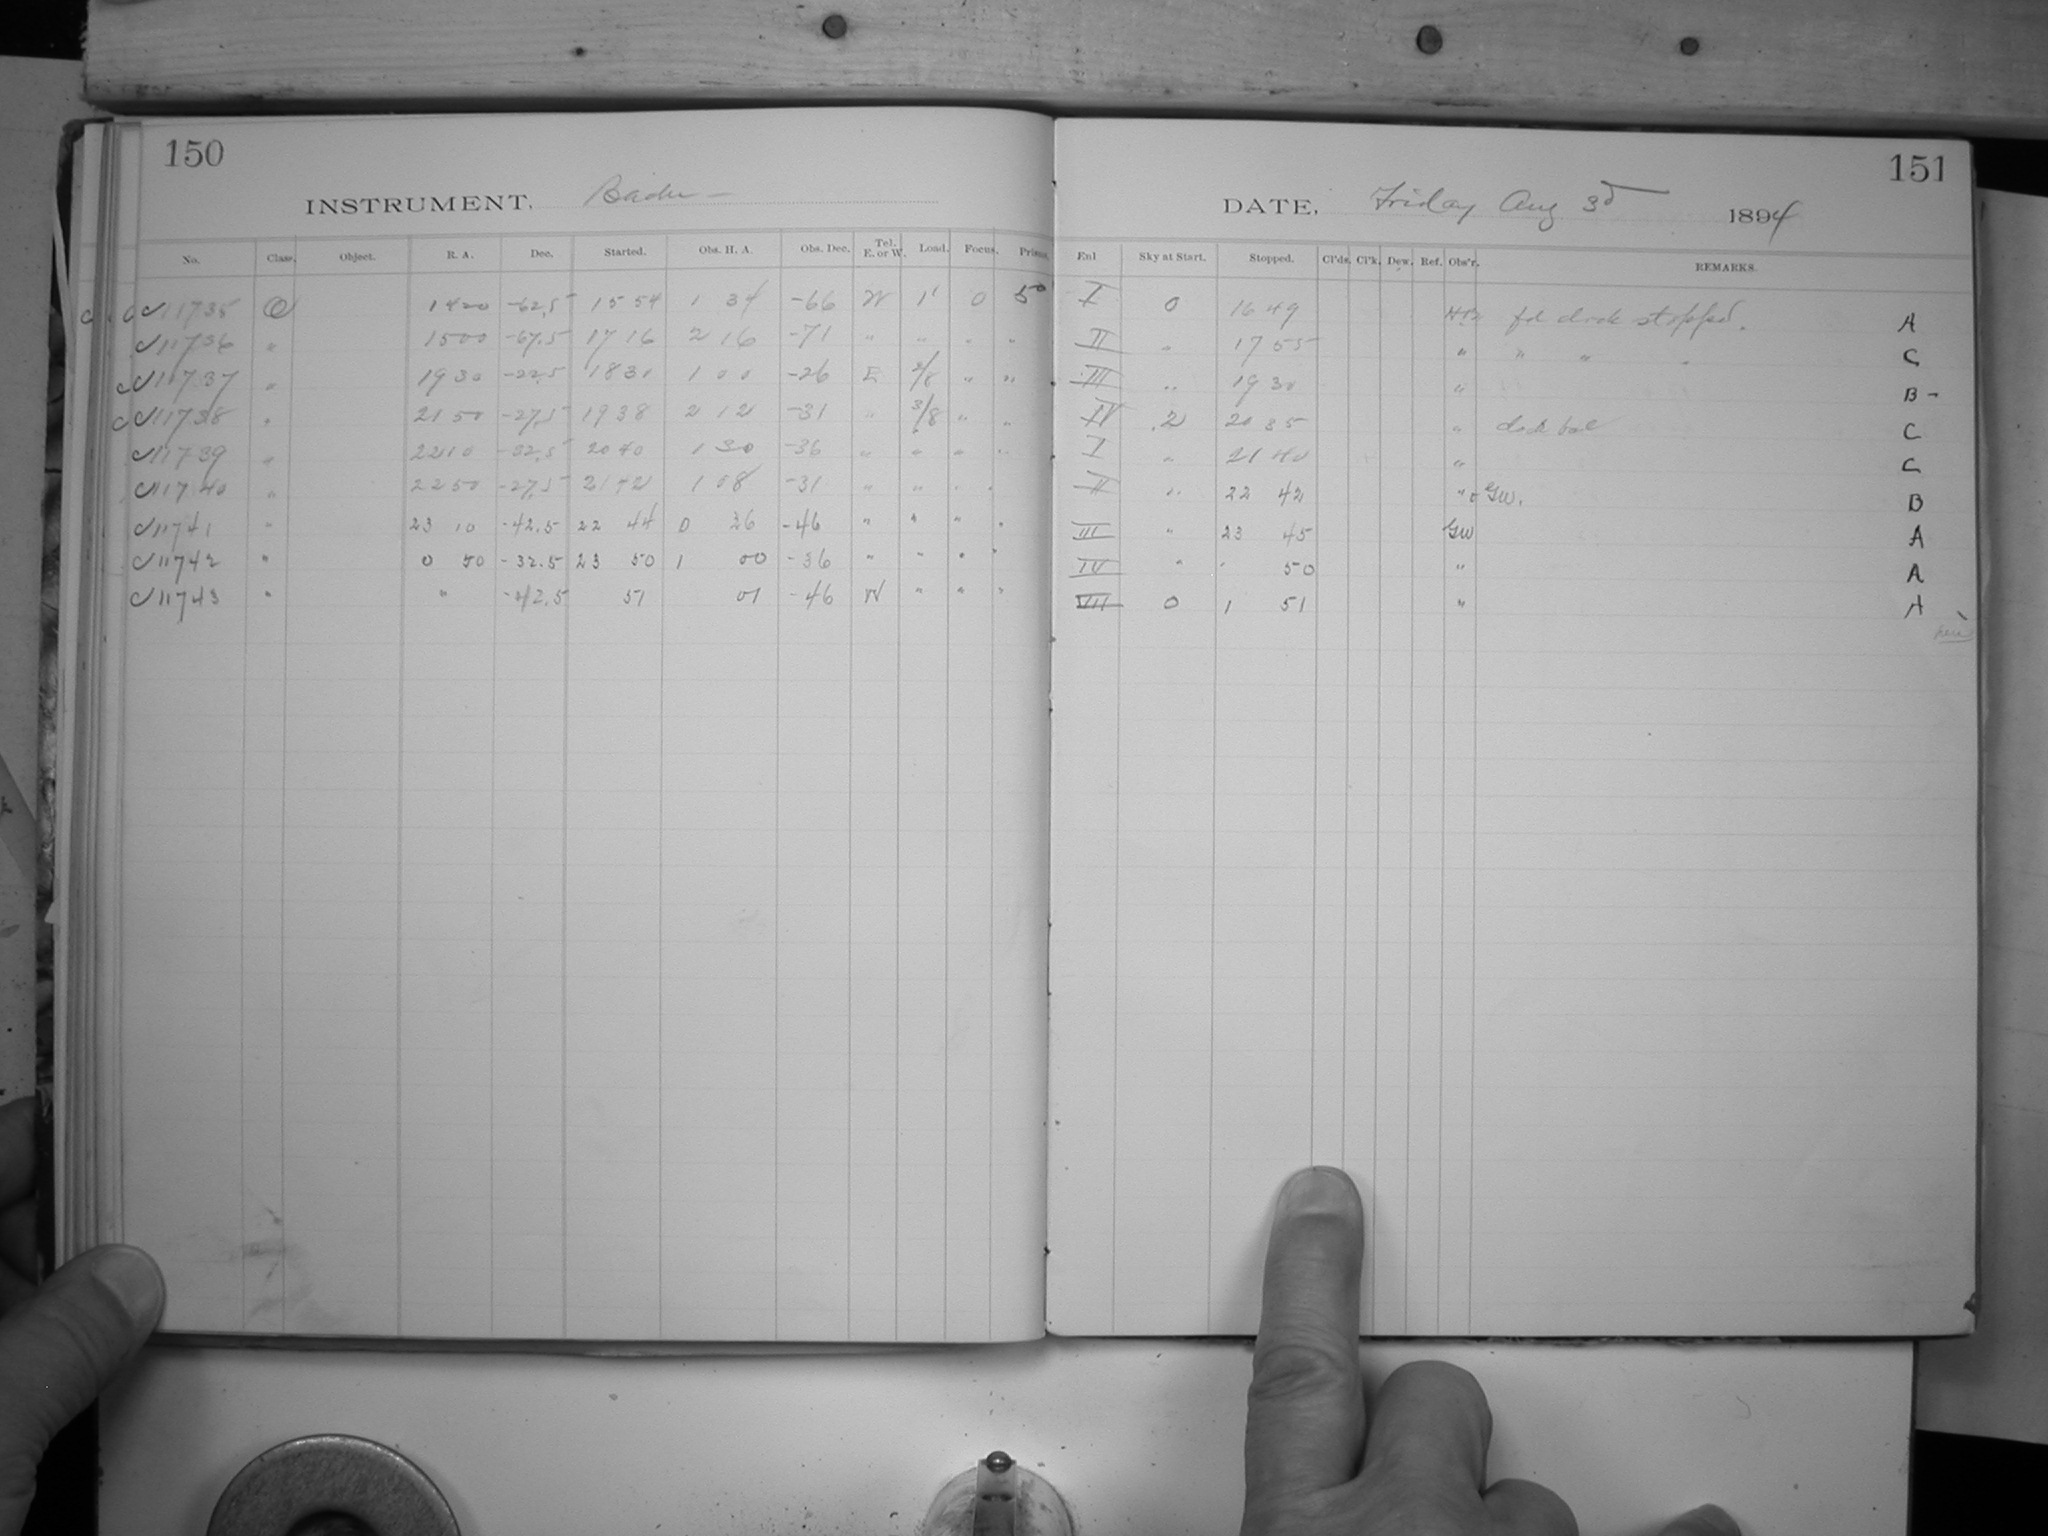 150
INSTRUMENT. Bache
No. Class. Object. R. A. Dec. Started. Obs. H. A. Obs. Dec. Tel. E. or W. Load. Focus. Prisms.
11735 O 14 20 -62.5 15 54 1 34 -66 W 1' 0 50
11736 " 15 00 -67.5 17 16 2 16 -71 " " " "
11737 " 19 30 -22.5 18 30 1 00 -26 E 2/8 " "
11738 " 21 50 -27.5 19 38 2 12 -31 " 3/8 " "
11739 " 22 10 -32.5 20 40 1 30 -36 " " " "
11740 " 22 50 -27.5 21 42 1 08 -31 " " " "
11741 " 23 10 -42.5 22 44 0 26 -46 " " " "
11742 " 0 50 -32.5 23 50 1 00 -36 " " " "
11743 " " -42.5 51 01 -46 W " " "
151
DATE, Friday Aug 3d 1894
Enl Sky at Start. Stopped. Cl'ds. Cl'k. Dew. Ref. Obs'r. REMARKS.
I 0 16 49 clock stopped. A
II " 17 55 " " " C
III " 19 30 " B -
IV 2 20 35 " clock bad C
I " 21 40 " C
II " 22 42 " GW. B
III " 23 45 GW A
IV " " 50 " A
VII 0 1 51 " A
here